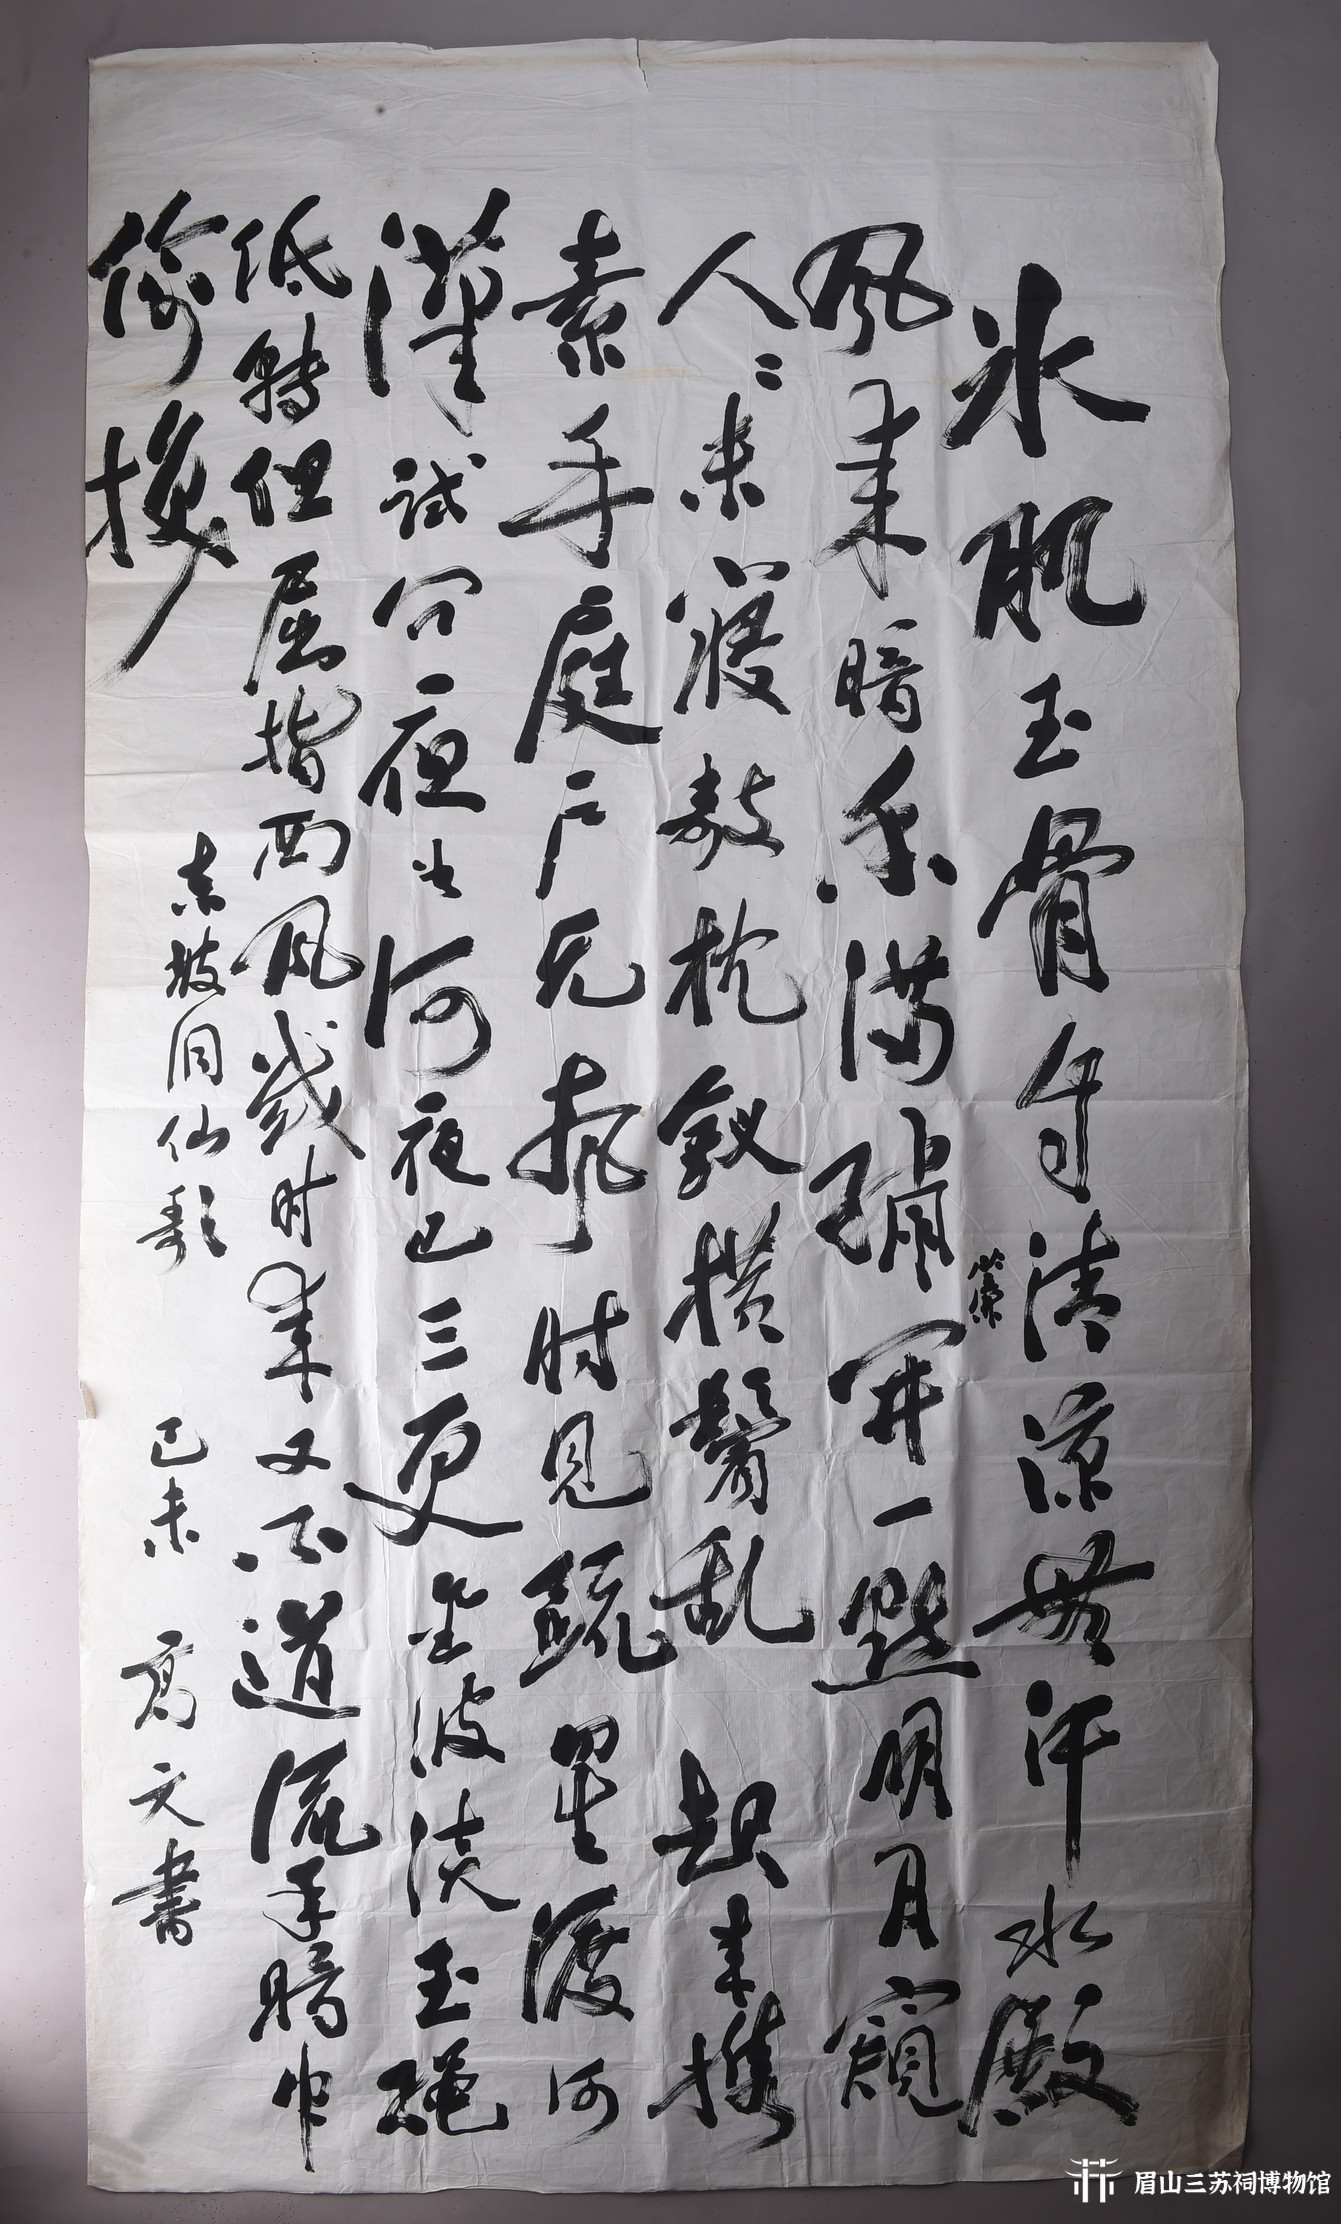 冰肌玉骨自清凉無汗水殿
风来暗香满绣開一點明月窥
簾
人〻未寢欹枕釵横鬓乱起来携
素手庭户无声时见疏星渡河
漢试问夜如何夜已三更金波淡玉绳
低转但屈指西风几时来又不道流年暗中
偷换
东坡洞仙歌 己未 高文書
眉山三苏祠博物馆